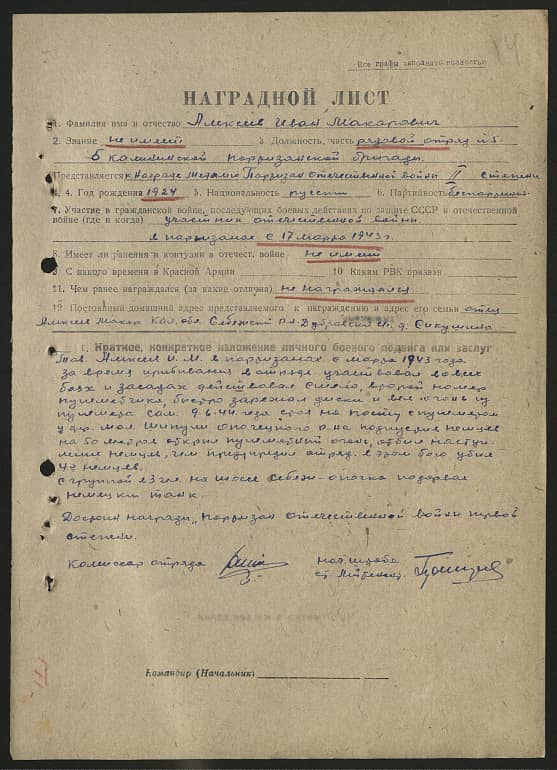 Все графы заполнять полностью
НАГРАДНОЙ ЛИСТ
1. Фамилия имя и отчество Алексеев Иван Макарович
2. Звание не имеет 3 Должность, часть рядовой отряд №5
5 Калининской партизанской бригады
Представляется к Награде Медалью Партизан отечественной войны II степени
4. Год рождения 1924 5. Национальность русский 6. Партийность беспартийн.
7. Участие в гражданской войне, последующих боевых действиях по защите СССР и отечественной
войне (где и когда) участник отечественной войны
в партизанах с 17 марта 1943 г
8. Имеет ли ранения и контузии в отечест. войне не имеет
9 С какого времени в Красной Армии 10 Каким РВК призван
11. Чем ранее награждался (за какие отличия) не награждался
12 Постоянный домашний адрес представляемого к награждению и адрес его семьи отец
Алексеев Макар Кал. обл. Себежский р-н Дубровский с/с д. Сикушино
1. Краткое, конкретное изложение личного боевого подвига или заслуг
Тов. Алексеев И.М. в партизанах с марта 1943 года
за время пребывания в отряде участвовал во всех
боях и засадах действовал смело, второй номер
пулеметчика, быстро заряжал диски и вел огонь из
пулемета сам. 9.6.44 года стоя на посту с пулеметом
у дер. мал. Шипули опочецкого р-на подпустив немцев
на 60 метров открыл пулеметный огонь, отбил наступ-
ление немцев, чем предупредил отряд. в этом бою убил
4х немцев.
с группой 23 чел. на шоссе Себеж-опочка подорвал
немецкий танк.
Достоин награды "партизан отечественной войны первой
степени.
Комиссар отряда
нач. штаба
ст. лейтенант
Командир (Начальник)